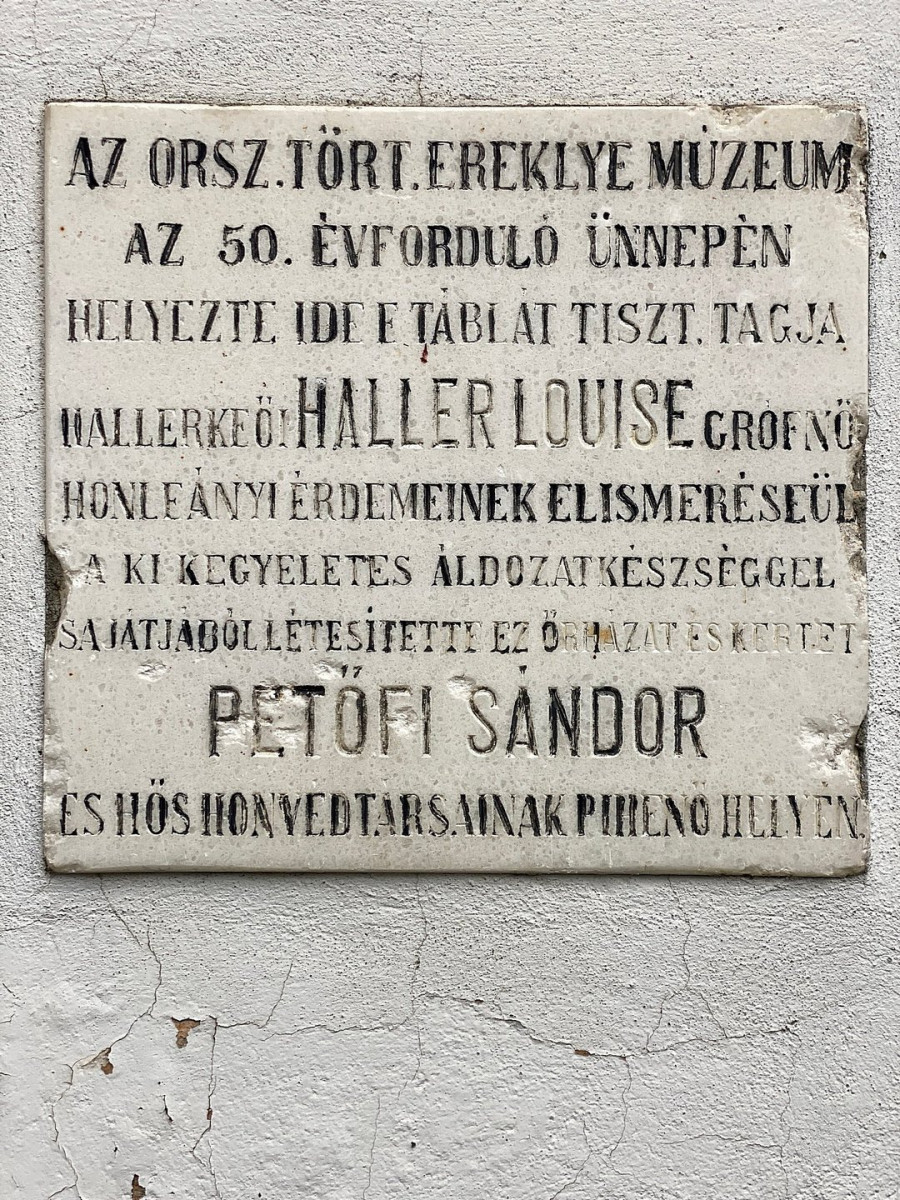 AZ ORSZ. TÖRT. EREKLYE MÚZEUM
AZ 50. ÉVFORDULÓ ÜNNEPÉN
HELYEZTE IDE E TÁBLÁT TISZT. TAGJA
HALLERKEÖI HALLER LOUISE GRÓFNŐ
HONLEÁNYI ÉRDEMEINEK ELISMERÉSEÜL
A KI KEGYELETES ÁLDOZATKÉSZSÉGGEL
SAJÁTJÁBÓL LÉTESÍTETTE EZ ŐRHÁZAT ES KERTET
PETŐFI SÁNDOR
ES HŐS HONVÉDTÁRSAINAK PIHENŐ HELYÉN.